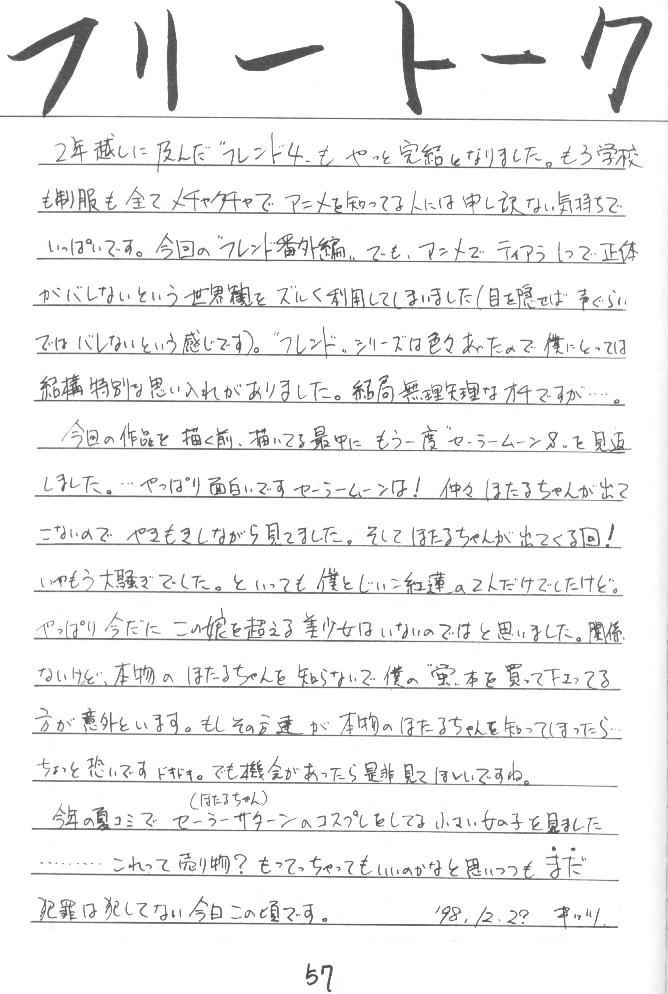 フリートーク
2年越しに及んだ"フレンド4"もやっと完結となりました。もう学校
も制服も全てメチャクチャでアニメを知ってる人には申し訳ない気持ちで
いっぱいです。今回の"フレンド番外編"でも、アニメでティアラ1つで正体
がバレないという世界観をズルく利用してしまいました(目を隠せば声ぐらい
ではバレないという感じです)。"フレンド"シリーズは色々あったので僕にとっては
結構特別な思い入れがありました。結局無理矢理なオチですが……。
今回の作品を描く前、描いてる最中にもう一度"セーラームーンS"を見返
しました。…やっぱり面白いですセーラームーンは!仲々ほたるちゃんが出て
こないのでやきもきしながら見てました。そしてほたるちゃんが出てくる回!
いやもう大騒ぎでした。といっても僕とじいこ紅蓮の2人だけでしたけど。
やっぱり今だにこの娘を超える美少女はいないのではと思いました。関係
ないけど、本物のほたるちゃんを知らないで僕の"蛍"本を買って下さってる
方が意外といます。もしその方達が本物のほたるちゃんを知ってしまったら…
ちょっと恐いですドキドキ。でも機会があったら是非見てほしいですね。
(ほたるちゃん)
今年の夏コミでセーラーサターンのコスプレをしてる小さい女の子を見ました
………これって売り物?もってっちゃってもいいのかなと思いつつもまだ
犯罪は犯してない今日この頃です。 '98.12.2?
57